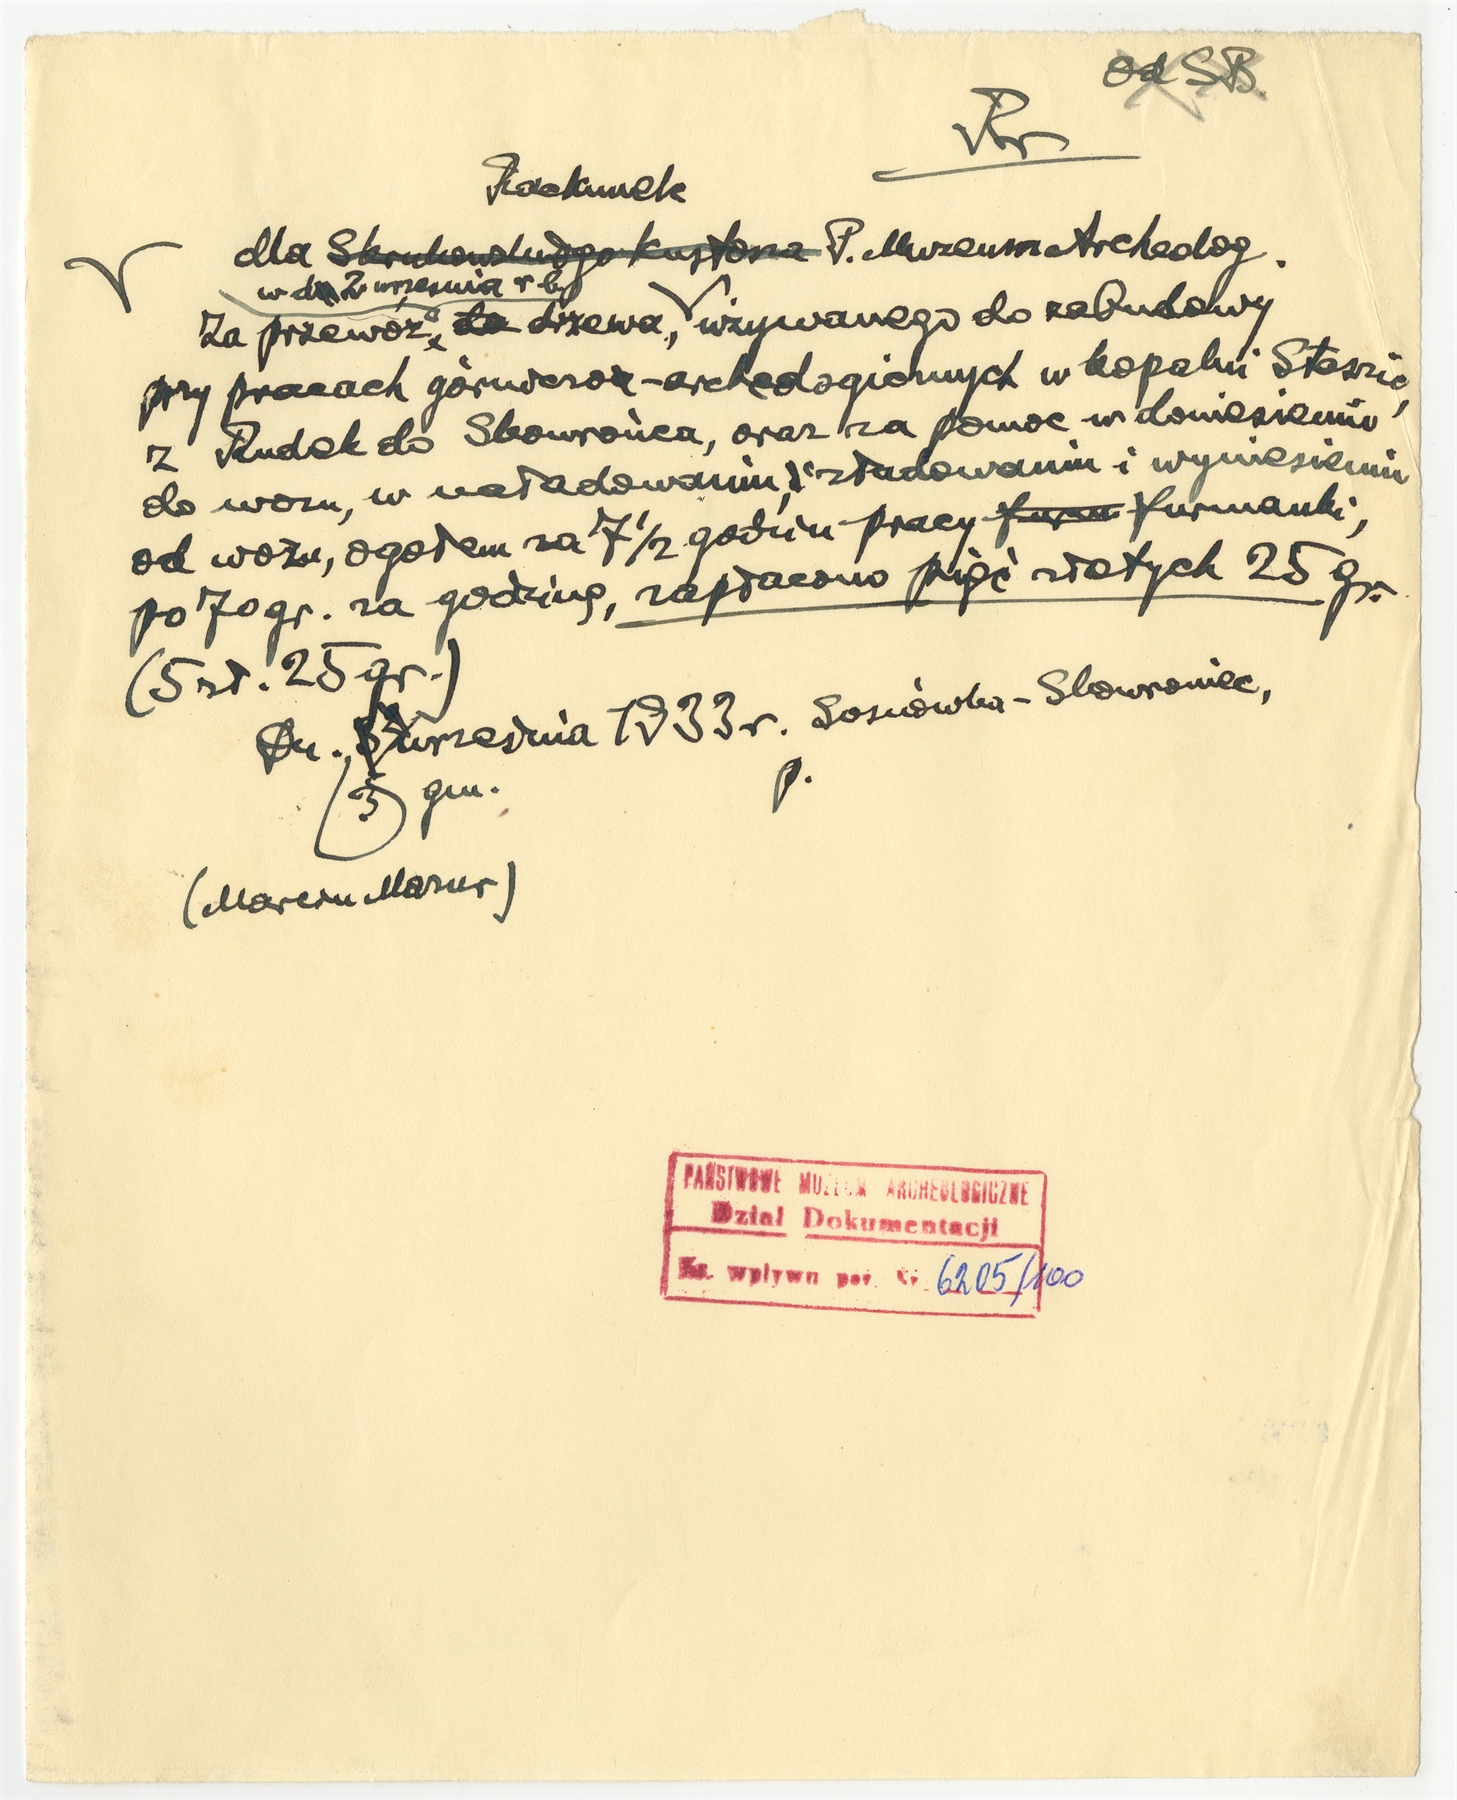 od S.B.
Rr
Rachunek
dla Skrukowskiego kustosza P. Muzeum Archeolog.
w dn 2 września r b
Za przewóz drzewa, używanego do zabudowy
przy pracach górniczo-archeologicznych w kopalni Staszic,
z Rudek do Skowrońca, oraz za pomoc w doniesieniu
do wozu, w naładowaniu, i zładowaniu i wyniesieniu
od wozu, ogółem za 7 1/2 godzin pracy furm furmanki,
po 70 gr. za godzinę, zapłacono pięć złotych 25 gr.
(5 zł. 25 gr.)
Dn. września 1933 r. Sosnówka-Skowroniec,
3 gm. p.
(Marcin Mazur)
PAŃSTWOWE MUZEUM ARCHEOLOGICZNE
Dział Dokumentacji
Ks. wpływu poz. Nr 6205/100